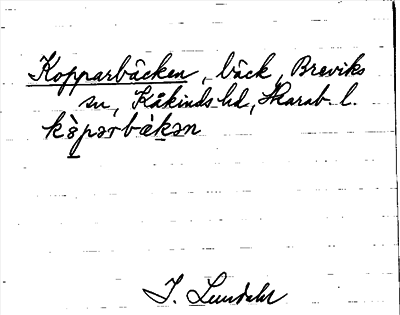 Kopparbäcken, bäck, Breviks
sn, Kåkinds hd, Skarab. l.
kòpərbàkən
I. Lundahl